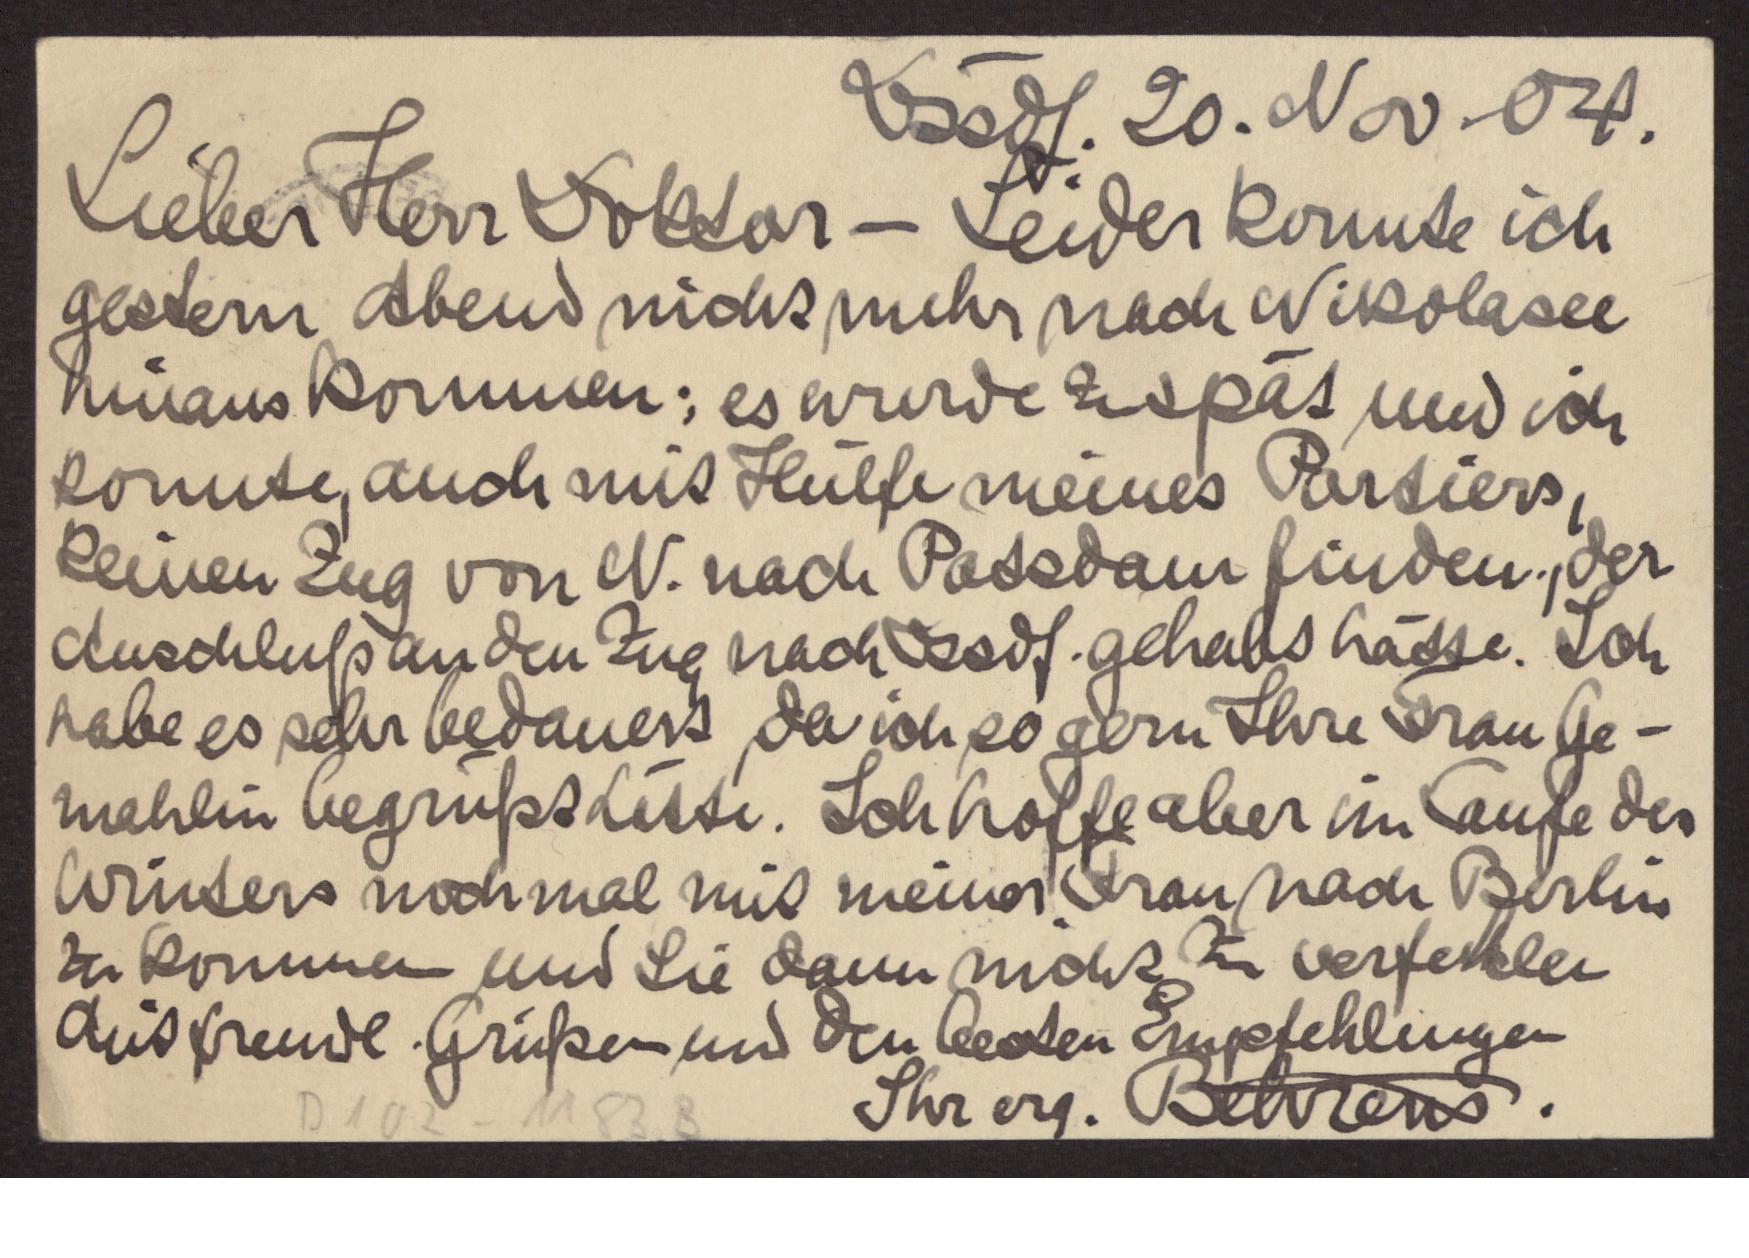 Dssdf. 20. Nov. 04.
Lieber Herr Doktor — Leider konnte ich
gestern Abend nicht mehr nach Nikolasee
hinaus kommen; es wurde zu spät und ich
konnte, auch mit Hülfe meines Portiers,
keinen Zug von N. nach Potsdam finden, der
Anschluß an den Zug nach Dssdf. gehabt hätte. Ich
habe es sehr bedauert, da ich so gern Ihre Frau Ge-
mahlin begrüßt hätte. Ich hoffe aber im Laufe des
Winters noch mal mit meiner Frau nach Berlin
zu kommen und Sie dann nicht zu verfehlen
Mit freundl. Grüßen und den besten Empfehlungen
Ihr erg. Behrens.
D 102 - 1183 B